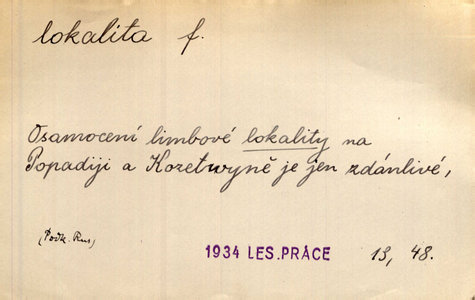 lokalita f.
Osamocení limbové lokality na
Popadiji a Kozetwyně je jen zdánlivé,
(Podk. Rus)
1934 LES. PRÁCE 13, 48.